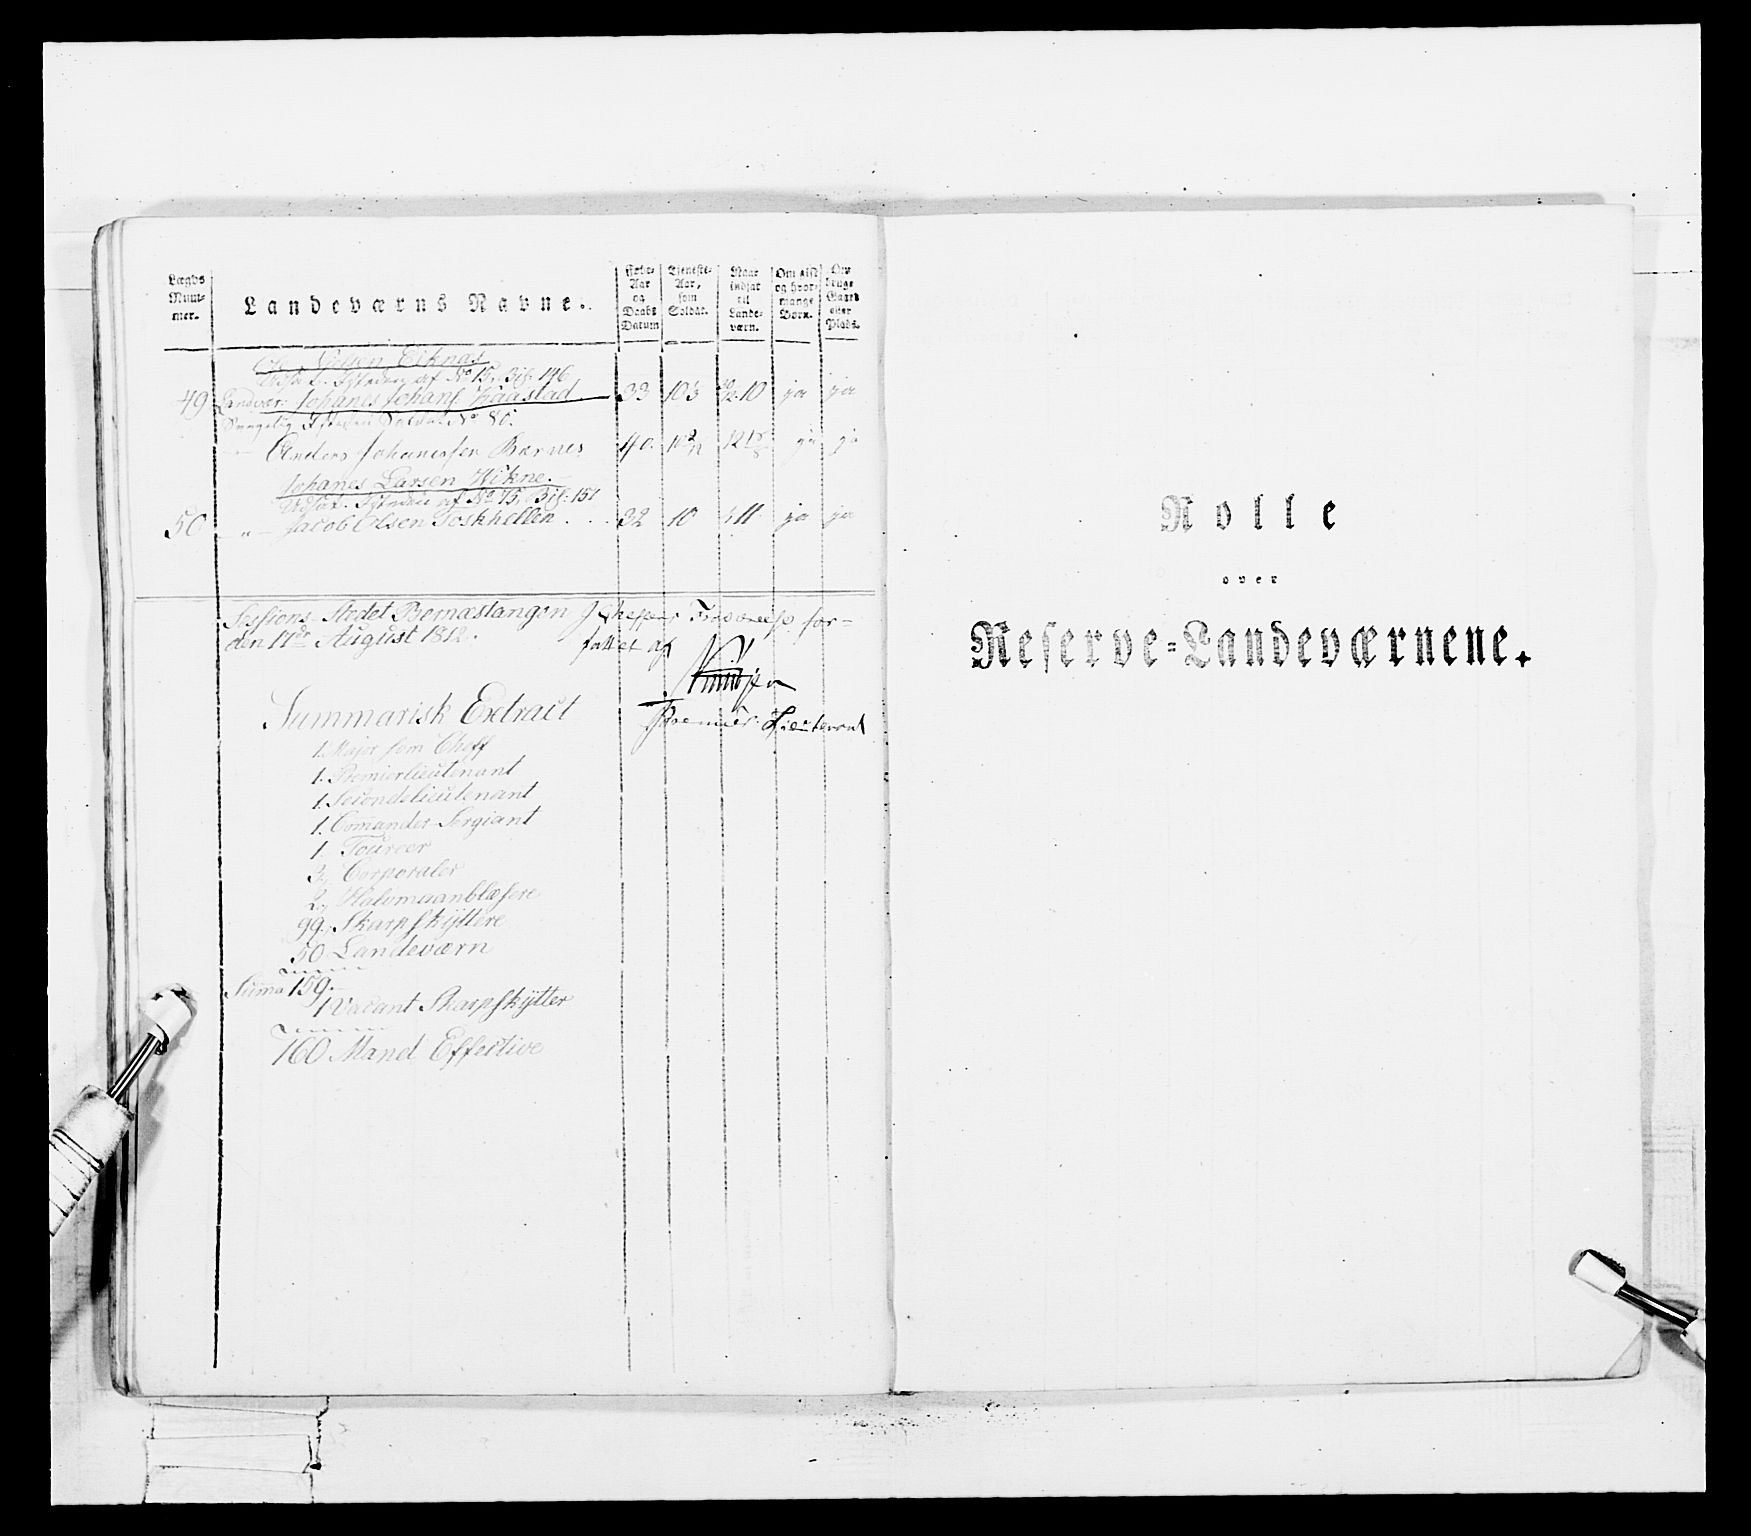 Lægds Num- mer.
Landeværns Navne.
Føde- Aar og Daabs Datum
Tjeneste- Aar, som Soldat.
Naar indsat til Lande- værn.
Om gift og hvor- mange Børn.
Om bruge Gaard eller Plads.
Olsen Eiknas
Udsat. Isteden af No 15, Bil: 146
49 Landvær: Johanes Johans. Kaastad 33 10 10 ja ja
Isteden Soldat No 80.
Anders Johanessen Bærnes 40. 12 ja ja
Johanes Larsen Wikne.
Udsat. Isteden af No 75, Bil: 151
50 „ Jacob Olsen Toskhellen . . . 32 10 11 ja ja
Sessions Stedet Bomæstangen I Chefens Fraværelse for-
den 17de August 1812. fattet af
Knudsen
Premier Lieutenant
Summarisk Extract
1. Major som Cheff
1. Premierlieutenant
1. Secondelieutenant
1. Comander Sergiant
1. Foureer
3. Corporaler
2. Halvmaanblæsere
99. Skarpskÿttere
50 Landeværn
Suma 159.
1 Vacant Skarpskÿtter
160 Mand Effective
Rolle
over
Reserve-Landeværnene.